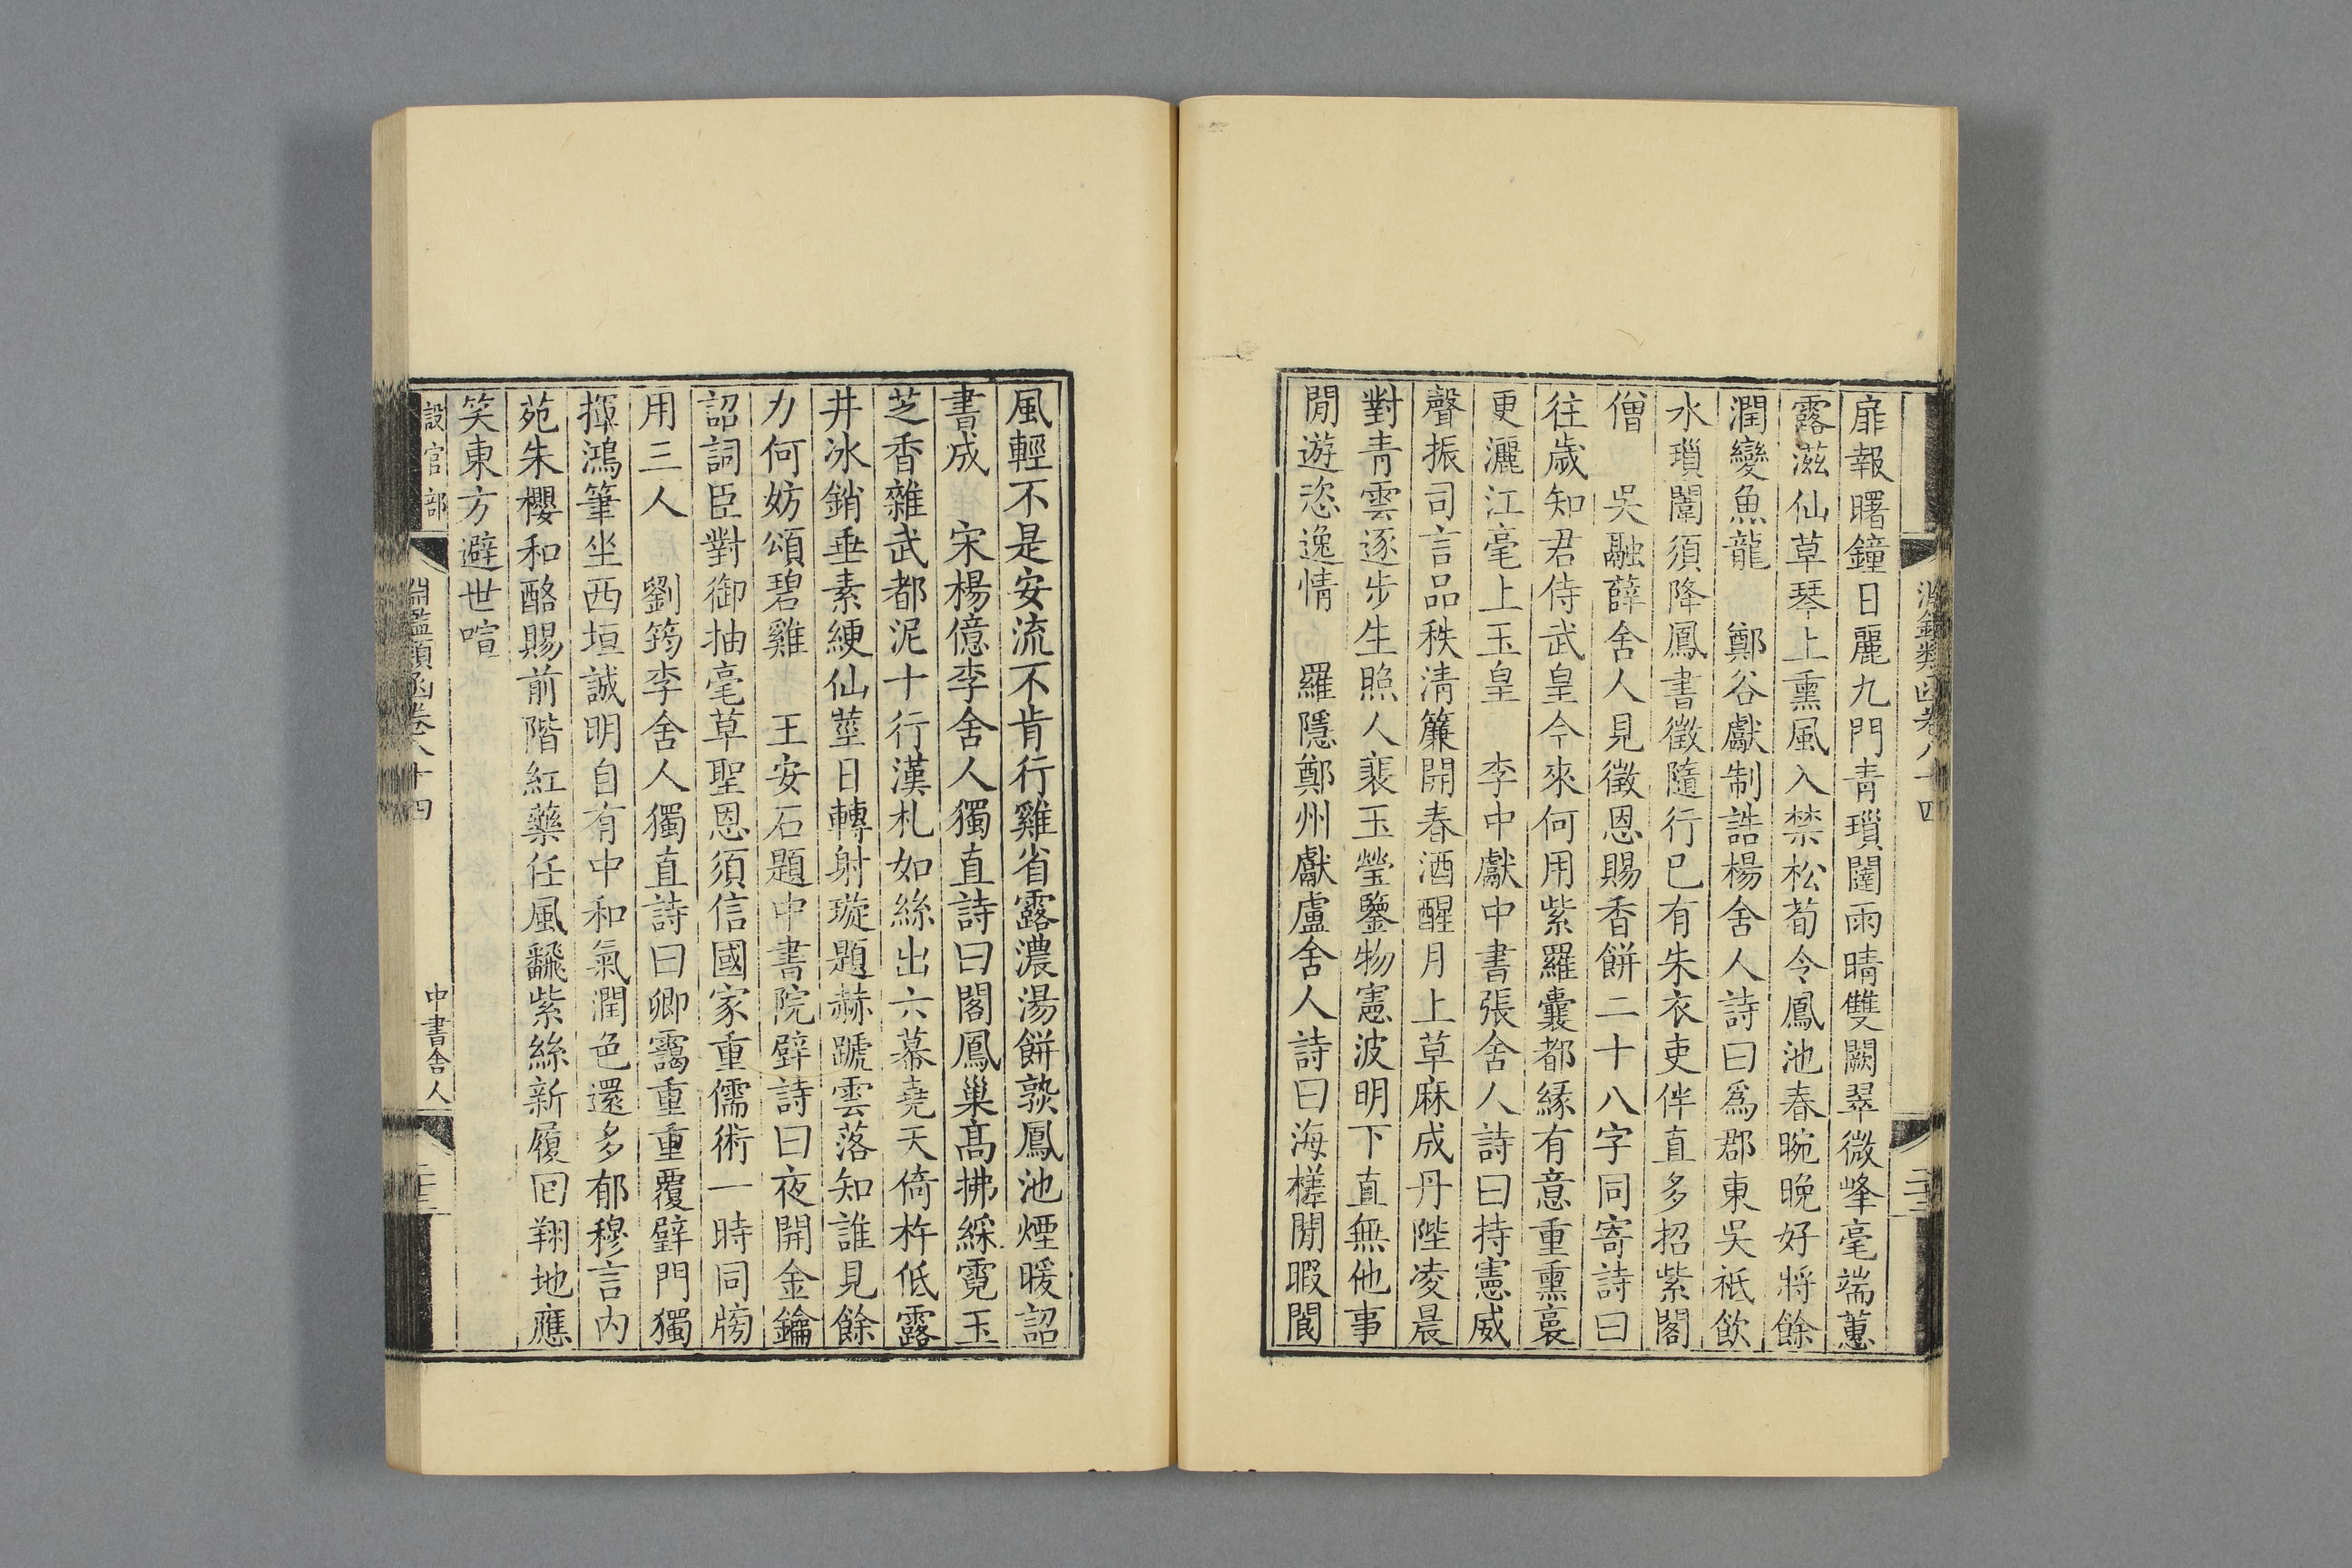 淵鑑類函卷八十四
二十三
扉報曙鐘日麗九門青瑣闥雨晴雙闕翠微峰毫端蕙
露滋仙草琴上熏風入禁松荀令鳳池春晼晚好將餘
潤變魚龍　鄭谷獻制誥楊舍人詩曰為郡東吳祗飲
水瑣闈須降鳳書徵隨行已有朱衣吏伴直多招紫閣
僧　吳融薛舍人見徵恩賜香餅二十八字同寄詩曰
往歲知君侍武皇今來何用紫羅囊都緣有意重熏裛
更灑江毫上玉皇　李中獻中書張舍人詩曰持憲威
聲振司言品秩清簾開春酒醒月上草麻成丹陛凌晨
對青雲逐步生照人裴玉瑩鑒物憲波明下直無他事
閒遊恣逸情　羅隱鄭州獻盧舍人詩曰海槎閒暇閬
風輕不是安流不肯行雞省露濃湯餅熟鳳池煙暖詔
書成　宋楊億李舍人獨直詩曰閣鳳巢高拂綵霓玉
芝香雜武都泥十行漢札如絲出六幕堯天倚杵低露
井冰銷垂素綆仙莖日轉射璇題赫蹏雲落知誰見餘
力何妨頌碧雞　王安石題中書院壁詩曰夜開金鑰
詔詞臣對御抽毫草聖恩須信國家重儒術一時同牓
用三人　劉筠李舍人獨直詩曰卿靄重重覆壁門獨
揮鴻筆坐西垣誠明自有中和氣潤色還多郁穆言內
苑朱櫻和酪賜前階紅藥任風飜紫絲新履回翔地應
笑東方避世喧
設官部
淵鑑類函卷八十四
中書舍人
二十三